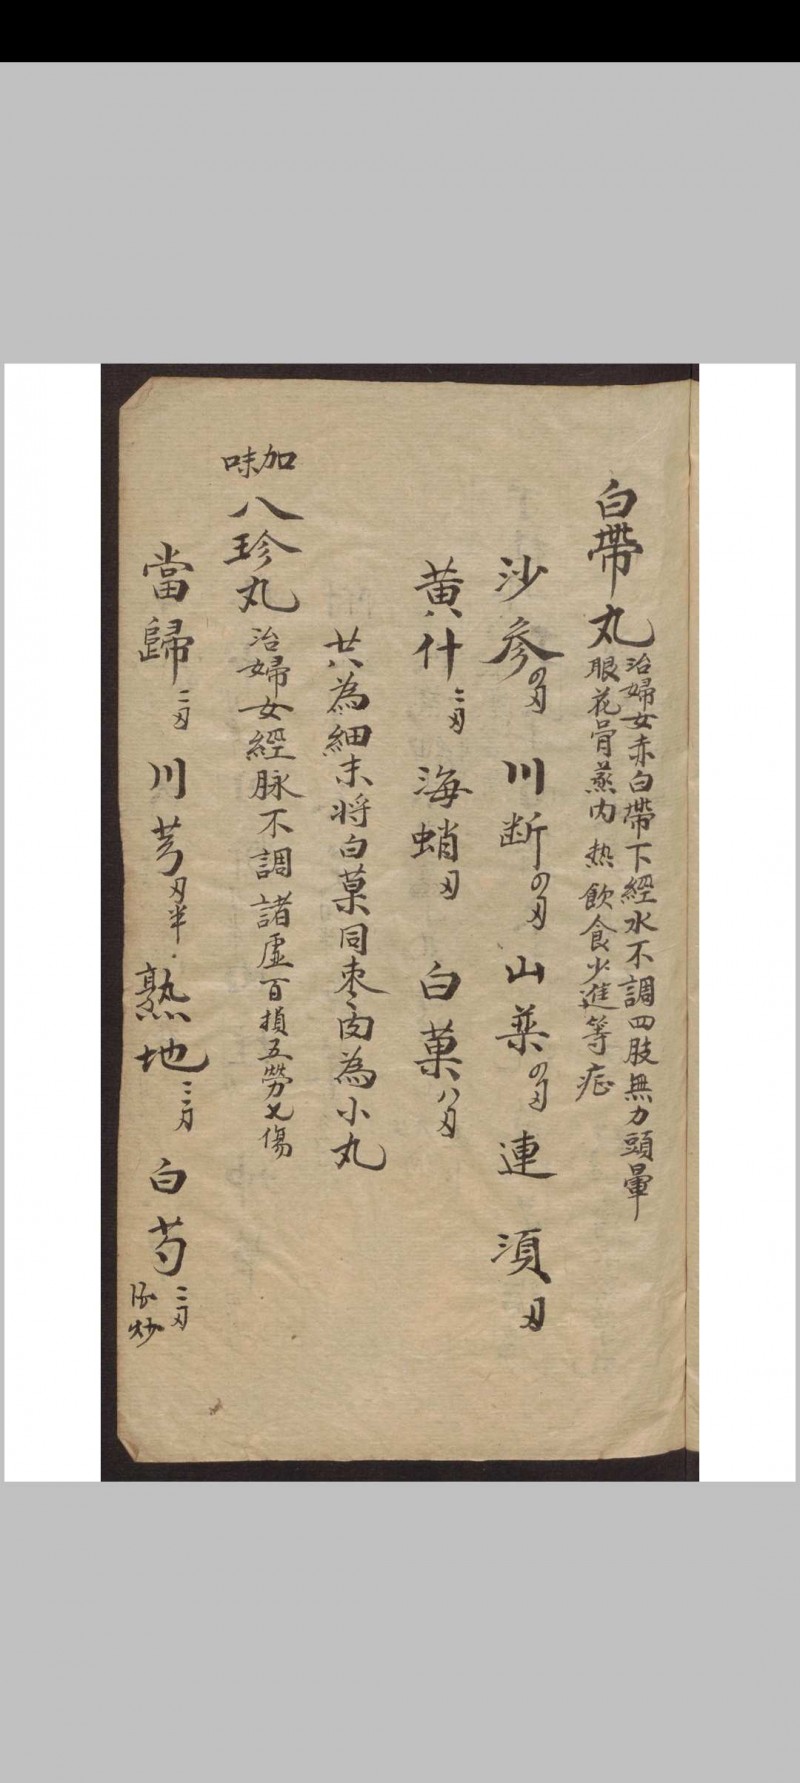 白帶丸
治婦女赤白帶下經水不調四肢無力頭暈
眼花骨蒸內热飲食少進等症
沙參四刄 川断四刄 山藥四刄 連須刄
黄什二刄 海蛸刄 白菓八刄
共為細末将白菓同枣肉為小丸
加味八珍丸 治婦女經脉不調諸虚百損五勞七傷
當歸二刄 川芎刄半 熟地三刄 白芍二刄 酒炒